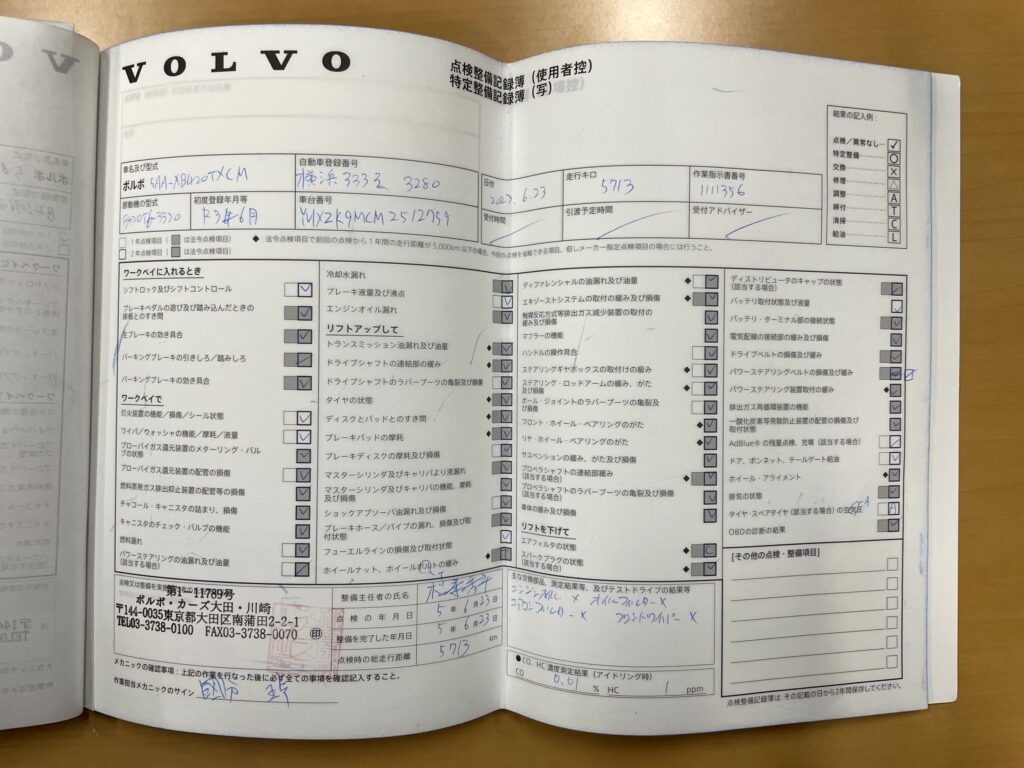 VOLVO
点検整備記録簿 (使用者控)
特定整備記録簿 (写)
結果の記入例:
点検/異常なし ✓
特定整備 ○
交換 ×
修理 △
調整 A
締付 T
清掃 C
給油 L
車名及び型式
ボルボ 5AA-XB420TXCM
自動車登録番号
横浜 333 3280
日付
2023.6.23
走行キロ
5713
作業指示書番号
1111356
原動機の型式
初度登録年月等
R3年6月
車台番号
受付時間
引渡予定時間
受付アドバイザー
1年点検項目 ( は法令点検項目)
2年点検項目 ( は法令点検項目)
◆:法令点検項目で前回の点検から1年間の走行距離が5,000km以下の場合、今回の点検を省略できる項目。但しメーカー指定点検項目の場合には行うこと。
ワークベイに入れるとき
シフトロック及びシフトコントロール
ブレーキペダルの遊び及び踏み込んだときの
床板とのすき間
主ブレーキの効き具合
パーキングブレーキの引きしろ/踏みしろ
パーキングブレーキの効き具合
ワークベイで
灯火装置の機能/損傷/シール状態
ワイパ/ウォッシャの機能/摩耗/液量
ブローバイガス還元装置のメターリング・バルブ
の状態
ブローバイガス還元装置の配管の損傷
燃料蒸発ガス排出抑止装置の配管等の損傷
チャコール・キャニスタの詰まり、損傷
キャニスタのチェック・バルブの機能
燃料漏れ
パワーステアリングの油漏れ及び油量
(該当する場合)
冷却水漏れ
ブレーキ液量及び沸点
エンジンオイル漏れ
リフトアップして
トランスミッション油漏れ及び油量
ドライブシャフトの連結部の緩み
ドライブシャフトのラバーブーツの亀裂及び損傷
タイヤの状態
ディスクとパッドとのすき間
ブレーキパッドの摩耗
ブレーキディスクの摩耗及び損傷
マスターシリンダ及びキャリパより液漏れ
マスターシリンダ及びキャリパの機能、摩耗
及び損傷
ショックアブソーバ油漏れ及び損傷
ブレーキホース/パイプの漏れ、損傷及び取
付状態
フューエルラインの損傷及び取付状態
ホイールナット、ホイールボルトの緩み
ディファレンシャルの油漏れ及び油量
エキゾーストシステムの取付の緩み及び損傷
触媒反応方式等排出ガス減少装置の取付の
緩み及び損傷
マフラーの機能
ハンドルの操作具合
ステアリングギヤボックスの取付けの緩み
ステアリング・ロッドアームの緩み、がた
及び損傷
ボール・ジョイントのラバーブーツの亀裂及び
損傷
フロント・ホイール・ベアリングのがた
リヤ・ホイール・ベアリングのがた
サスペンションの緩み、がた及び損傷
プロペラシャフトの連結部緩み
(該当する場合)
プロペラシャフトのラバーブーツの亀裂及び損傷
(該当する場合)
車体の緩み及び損傷
リフトを下げて
エアフィルタの状態
スパークプラグの状態
(該当する場合)
ディストリビュータのキャップの状態
(該当する場合)
バッテリ取付状態及び液量
バッテリ・ターミナル部の接続状態
電気配線の接続部の緩み及び損傷
ドライブベルトの損傷及び緩み
パワーステアリングベルトの損傷及び緩み
パワーステアリング装置取付の緩み
排出ガス再循環装置の機能
一酸化炭素等発散防止装置の配管の損傷及び
取付状態
AdBlue®の残量点検、充填 (該当する場合)
ドア、ボンネット、テールゲート給油
ホイール・アライメント
排気の状態
タイヤ スペアタイヤ (該当する場合) の空気圧
OBDの診断の結果
[その他の点検・整備項目]
第1-11789号
ボルボ・カーズ大田・川崎
〒144-0035東京都大田区南蒲田2-2-1
TEL03-3738-0100 FAX03-3738-0070 ㊞
整備主任者の氏名
点検の年月日 5年6月23日
整備を完了した年月日 5年6月23日
点検時の総走行距離 5713 km
主な交換部品、測定結果等、及びテストドライブの結果等
エンジンオイル × オイルフィルター ×
エアコンフィルター × フロントワイパー ×
●CO、HC濃度測定結果 (アイドリング時)
CO 0.01 % HC 1 ppm
メカニックの確認事項:上記の作業を行なった後に必ず全ての事項を確認記入すること。
作業担当メカニックのサイン
点検整備記録簿は その記載の日から2年間保存してください。